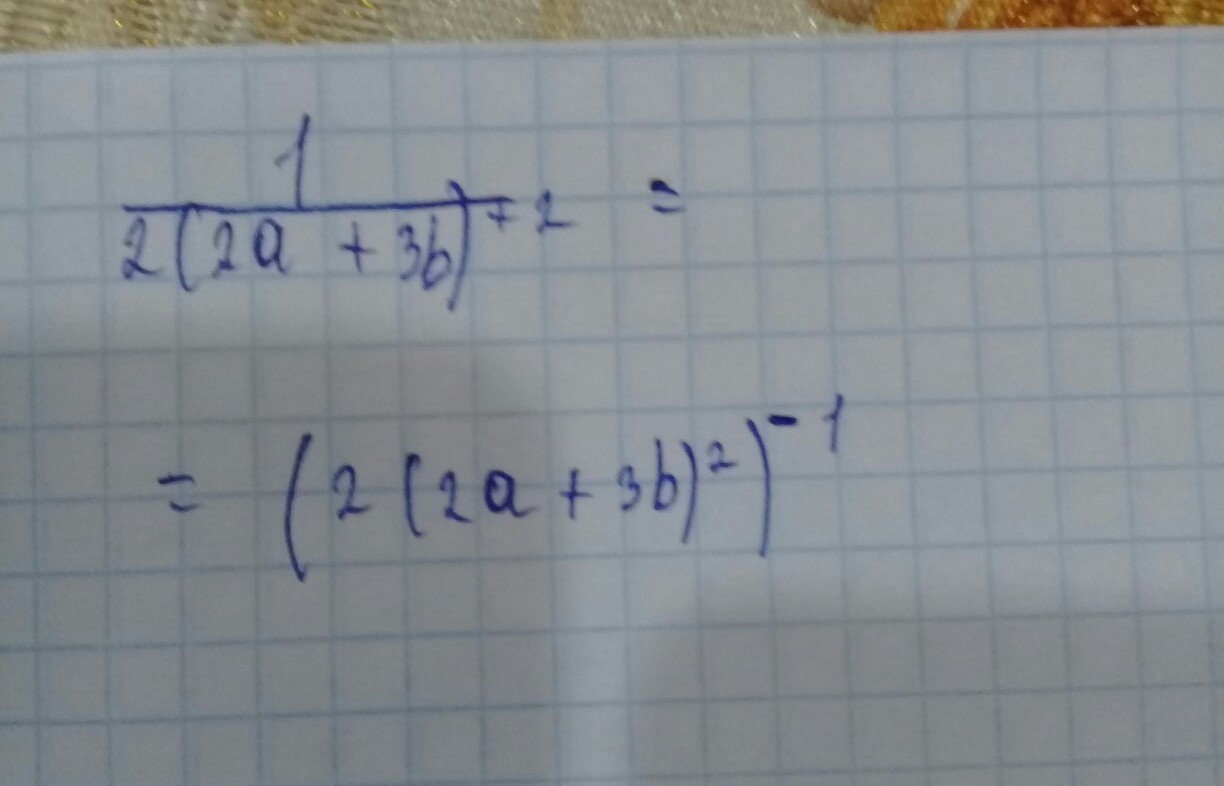 1
2(2a + 3b)^{+2} =
= (2(2a + 3b)²)^{-1}